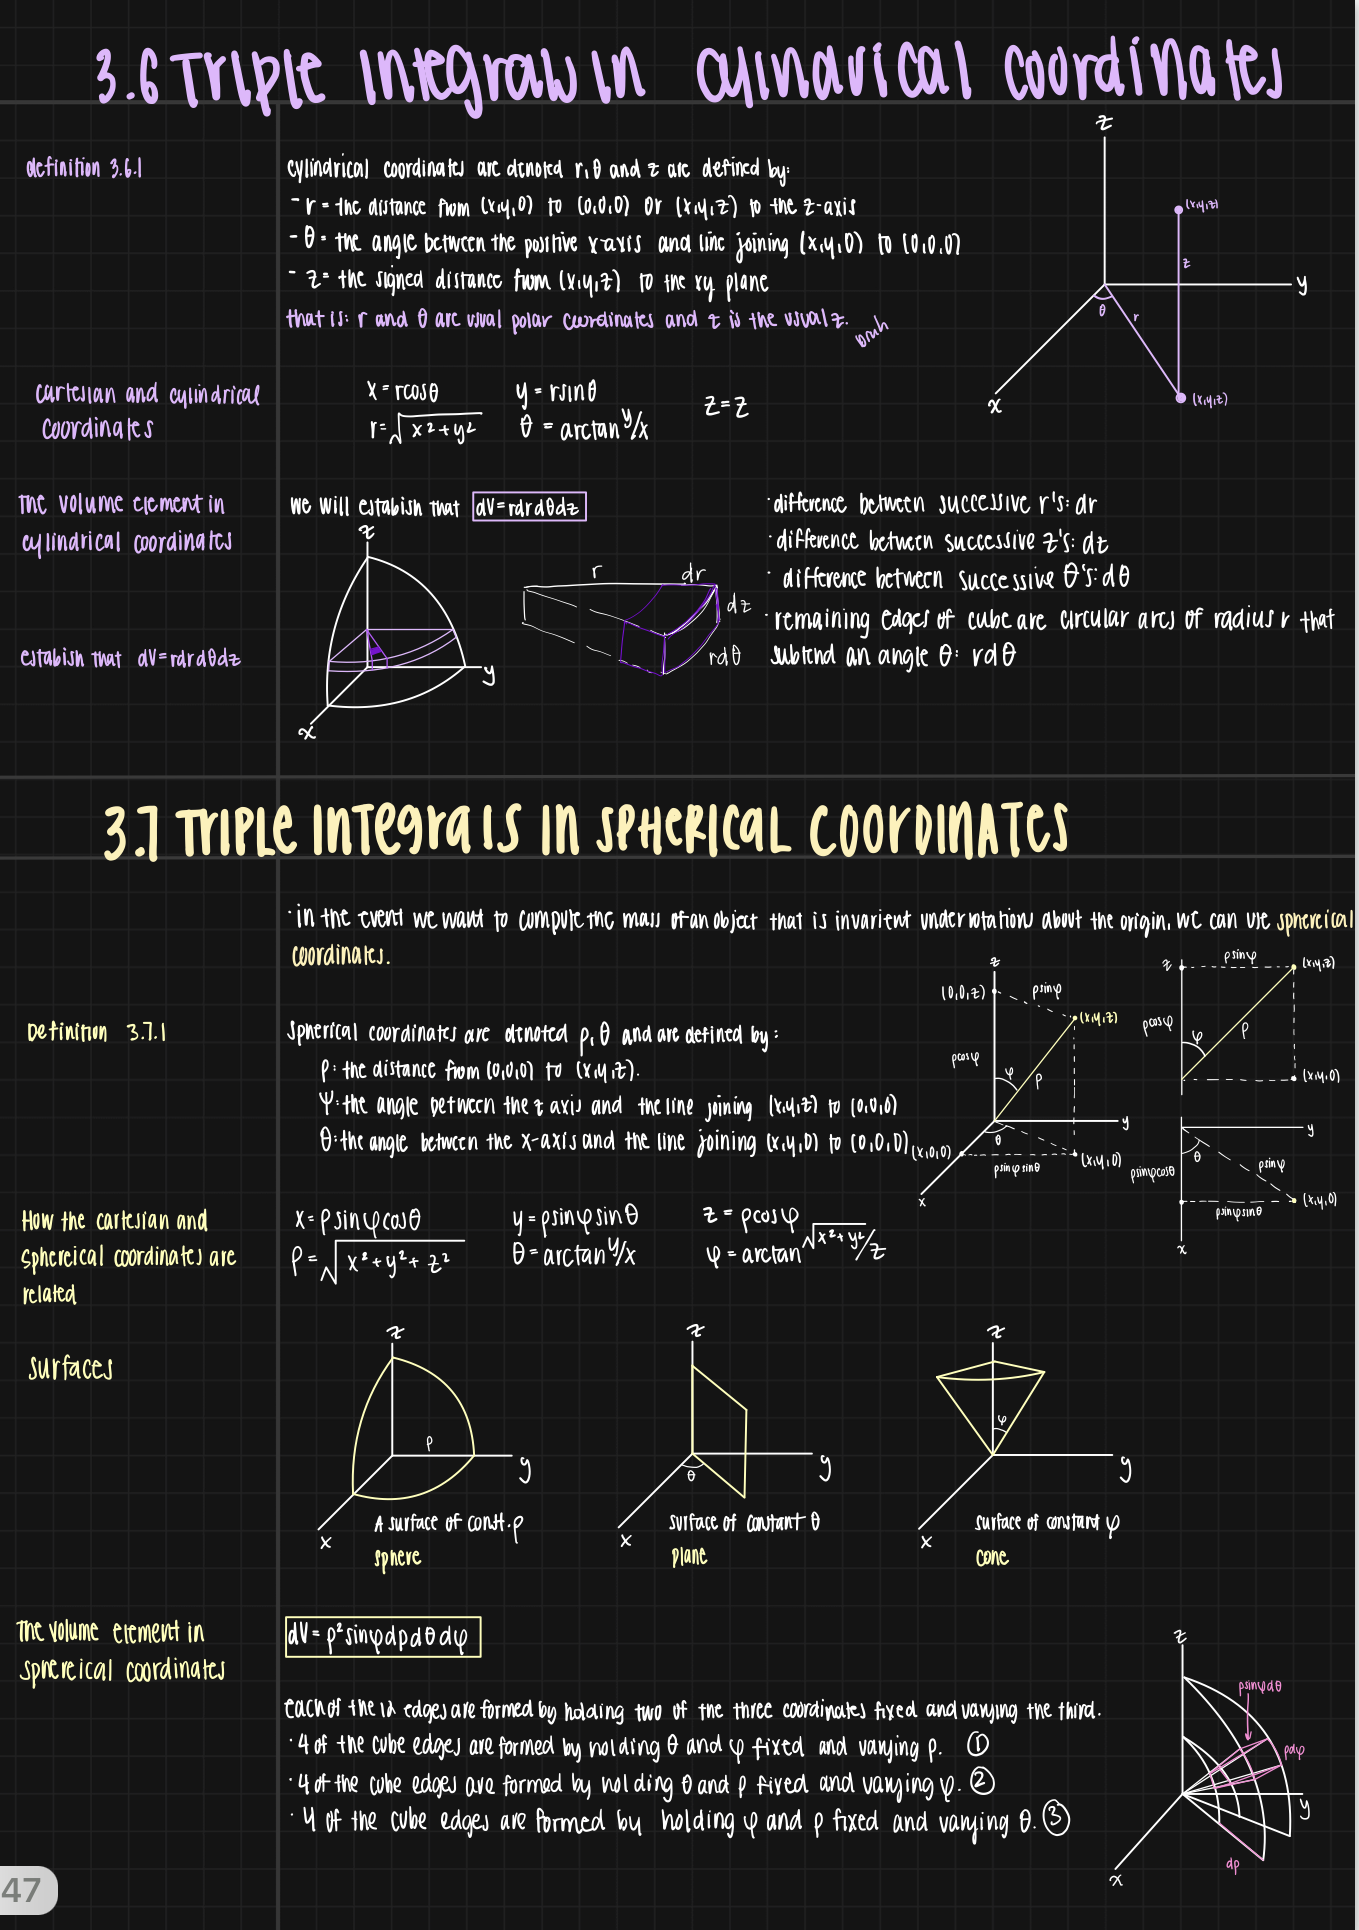 3.6 Triple Integrals in cylindrical coordinates
definition 3.6.1
cylindrical coordinates are denoted r, θ and z are defined by:
- r = the distance from (x,y,0) to (0,0,0) or (x,y,z) to the z-axis
- θ = the angle between the positive x-axis and line joining (x,y,0) to (0,0,0)
- z = the signed distance from (x,y,z) to the xy plane
that is: r and θ are usual polar coordinates and z is the usual z.
bruh
z
(x,y,z)
z
y
θ
r
x
(x,y,z)
cartesian and cylindrical
coordinates
x = rcosθ y = rsinθ z = z
r = √x²+y² θ = arctan y/x
The volume element in
cylindrical coordinates
we will estabish that dV = rdrdθdz
z
y
x
r
dr
dz
rdθ
· difference between successive r's: dr
· difference between successive z's: dz
· difference between successive θ's: dθ
· remaining edges of cube are circular arcs of radius r that
subtend an angle θ: rdθ
estabish that dV = rdrdθdz
3.7 TRIPLE Integrals In SPHERICAL COORDINATES
· in the event we want to compute the mass of an object that is invarient under rotations about the origin, we can use sphereical
coordinates.
Definition 3.7.1
spherical coordinates are denoted ρ, θ and are defined by:
ρ: the distance from (0,0,0) to (x,y,z).
Ψ: the angle between the z axis and the line joining (x,y,z) to (0,0,0)
θ: the angle between the x-axis and the line joining (x,y,0) to (0,0,0)
z
(0,0,z)
ρsinφ
(x,y,z)
ρcosφ
φ
ρ
y
θ
(x,0,0)
ρsinφsinθ
(x,y,0)
x
z
ρsinφ
(x,y,z)
ρcosφ
φ
ρ
(x,y,0)
y
θ
ρsinφcosθ
ρsinφ
(x,y,0)
ρsinφsinθ
x
How the cartesian and
sphereical coordinates are
related
x = ρsinφcosθ y = ρsinφsinθ z = ρcosφ
ρ = √x²+y²+z² θ = arctan y/x φ = arctan √x²+y²/z
surfaces
z
ρ
y
x
A surface of const. ρ
sphere
z
θ
y
x
surface of constant θ
plane
z
φ
y
x
surface of constant φ
cone
The volume element in
sphereical coordinates
dV = ρ²sinφdρdθdφ
each of the 12 edges are formed by holding two of the three coordinates fixed and varying the third.
· 4 of the cube edges are formed by holding θ and φ fixed and varying ρ. ①
· 4 of the cube edges are formed by holding θ and ρ fixed and varying φ. ②
· 4 of the cube edges are formed by holding φ and ρ fixed and varying θ. ③
z
ρsinφdθ
ρdφ
y
dρ
x
47